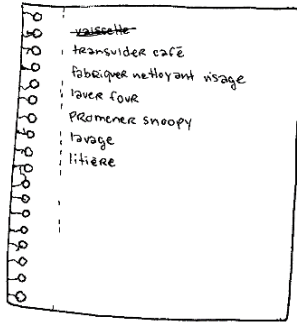 vaisselle
transvider café
fabriquer nettoyant visage
laver four
promener snoopy
lavage
litière